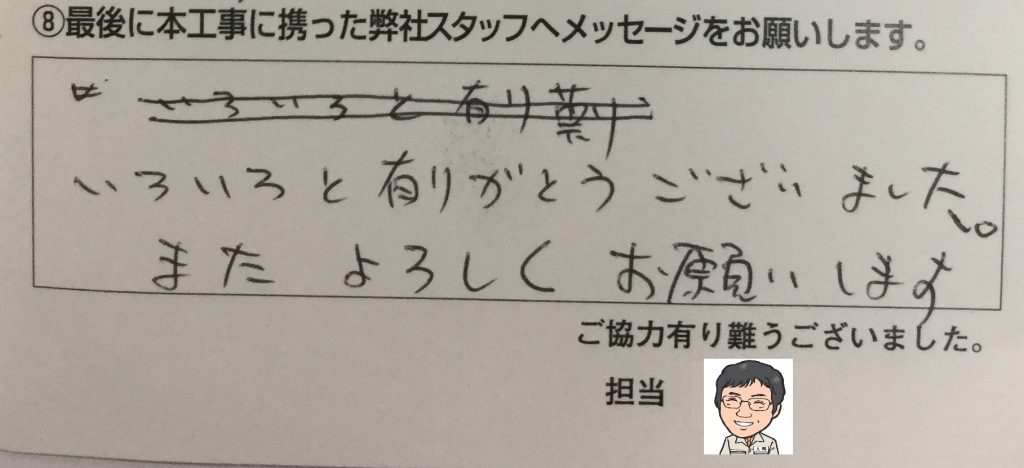 ⑧最後に本工事に携った弊社スタッフへメッセージをお願いします。
いろいろと有り
いろいろと有りがとうございました。
また よろしく お願いします
ご協力有り難うございました。
担当